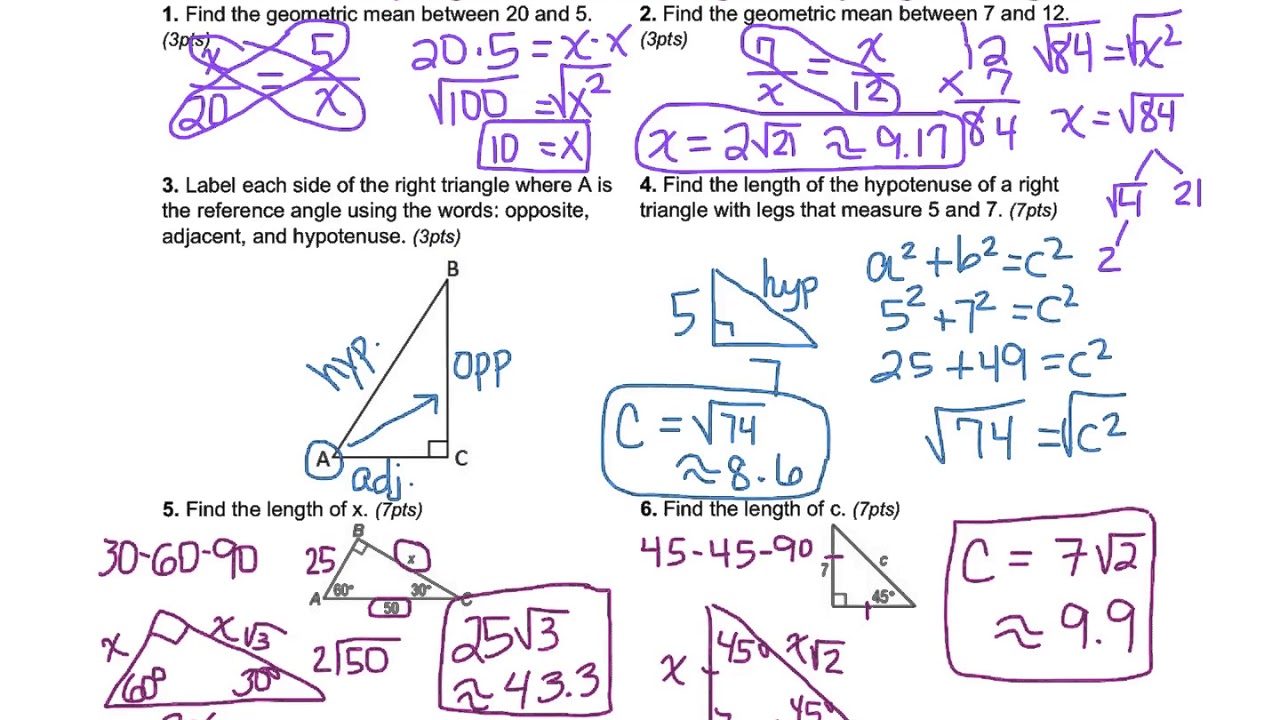 1. Find the geometric mean between 20 and 5.
(3pts)
x/20 = 5/x
20·5 = x·x
√100 = √x²
10 = x
2. Find the geometric mean between 7 and 12.
(3pts)
7/x = x/12
12
x 7
84
√84 = √x²
x = √84
√4 21
2
x = 2√21 ≈ 9.17
3. Label each side of the right triangle where A is
the reference angle using the words: opposite,
adjacent, and hypotenuse. (3pts)
B
hyp.
opp
A
C
adj.
4. Find the length of the hypotenuse of a right
triangle with legs that measure 5 and 7. (7pts)
5
hyp
7
a² + b² = c²
5² + 7² = c²
25 + 49 = c²
√74 = √c²
C = √74
≈ 8.6
5. Find the length of x. (7pts)
30-60-90
25
B
x
A
60°
30°
C
50
x
x√3
60°
30°
2√50
25√3
≈ 43.3
6. Find the length of c. (7pts)
45-45-90
7
c
45°
x
45°
x√2
45°
C = 7√2
≈ 9.9